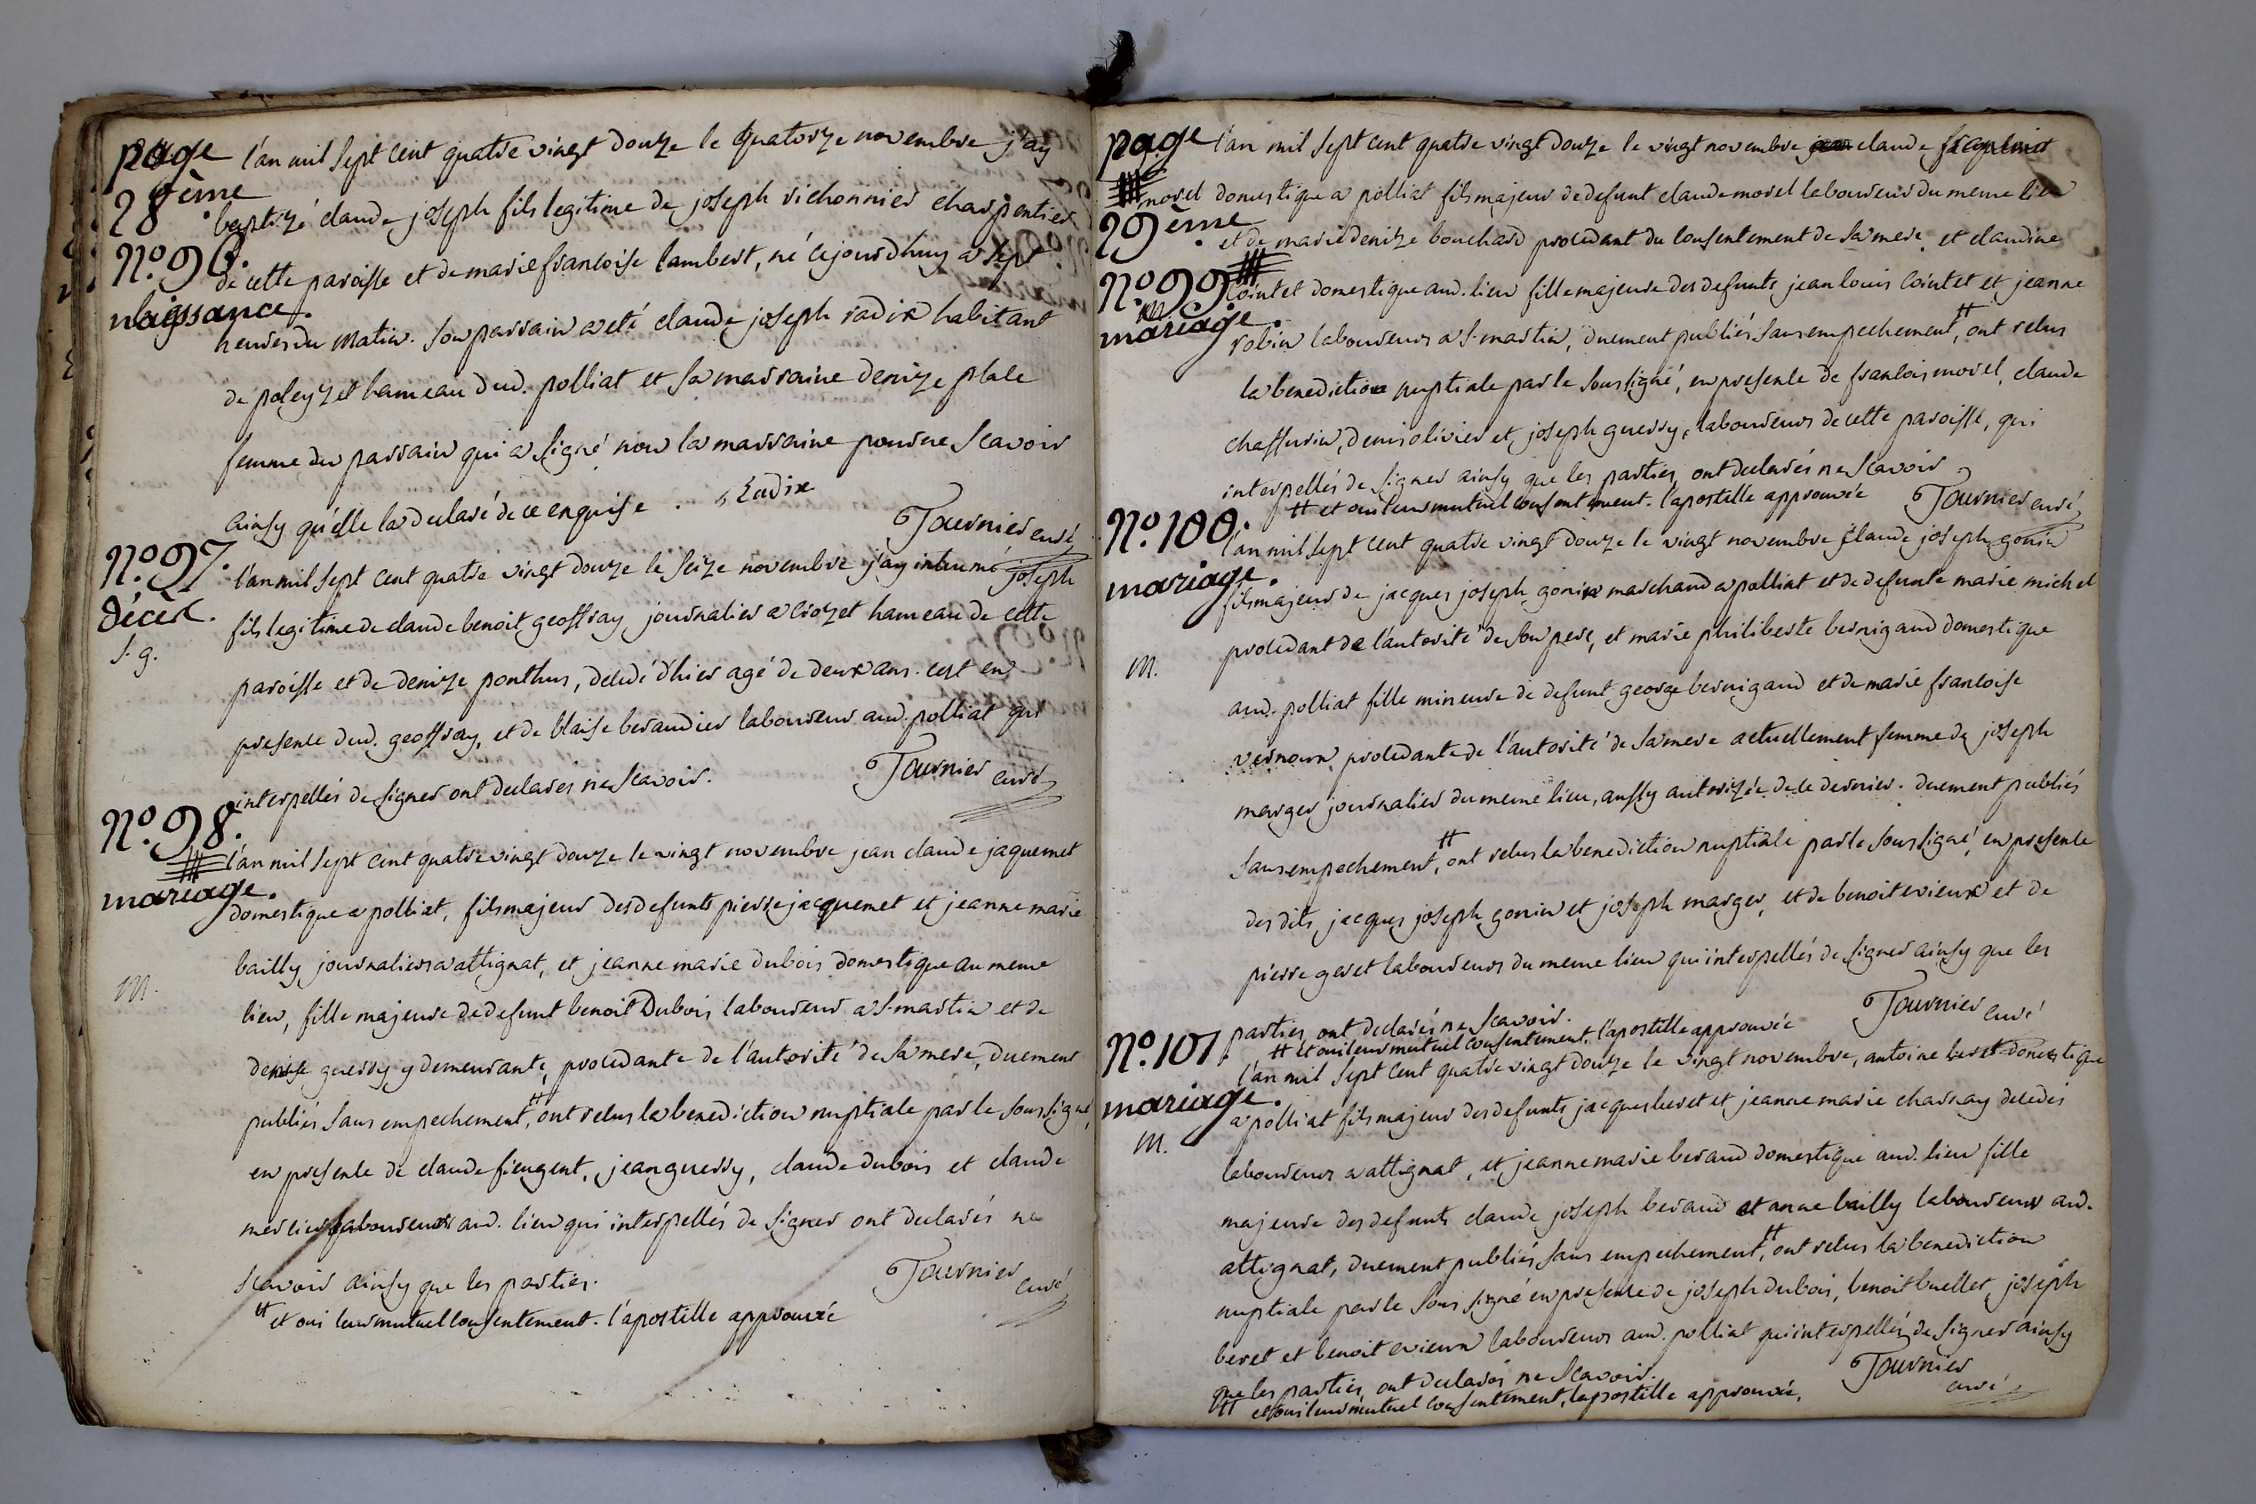 page
28ème.
l'an mil sept cent quatre vingt douze le quatorze novembre j'ay
baptizé claude joseph fils legitime de joseph richonnier charpentier
N.º 96.
naissance.
de cette paroisse et de marie francoise lambert, né cejourdhuy a sept
heures du matin. son parrain a eté claude joseph radix habitant
de poleyzet hameau dud. polliat et sa marraine denize place
femme du parrain qui a signé non la marraine pour ne scavoir
ainsy qu'elle la declaré de ce enquise. Radix
Tournier curé
N.º 97.
décet.
s. g.
l'an mil sept cent quatre vingt douze le seize novembre j'ay inhumé joseph
fils legitime de claude benoit geoffray journalier a crozet hameau de cette
paroisse et de denize ponthus, decedé d'hier agé de deux ans. cest en
presence dud. geoffray, et de blaise beraudier laboureur aud. polliat qui
interpellés de signer ont declarés ne scavoir.
Tournier curé
N.º 98.
mariage.
m.
l'an mil sept cent quatre vingt douze le vingt novembre jean claude jaquemet
domestique a polliat, fils majeur des defunts pierre jacquemet et jeanne marie
bailly journaliers a attignat, et jeanne marie dubois domestique au meme
lieu, fille majeure de defunt benoit Dubois laboureur a s.martin et de
denise guerry y demeurante, procedante de l'autorité de sa mere, duement
publiés sans empechement, # ont recus la benediction nuptiale par le soussigné,
en presence de claude fieugent, jean guerry, claude dubois et claude
mercier laboureurs aud. lieu qui interpellés de signer ont declarés ne
scavoir ainsy que les parties.
Tournier curé
# et oui leur mutuel consentement. l'apostille approuvée
page
29ème.
l'an mil sept cent quatre vingt douze le vingt novembre jean claude
morel domestique a polliat fils majeur de defunt claude morel laboureur du meme lieu
et de marie denize bouchard procedant du consentement de sa mere, et claudine
N.º 99.
m
mariage.
cointet domestique aud. lieu fille majeure des defunts jean louis cointet et jeanne
robin laboureurs a s.martin, duement publiés sans empechement, # ont recus
la benediction nuptiale par le soussigné, en presence de francois morel, claude
chaffurin, denis olivier et joseph guerry, laboureurs de cette paroisse, qui
interpellés de signer ainsy que les parties, ont declarés ne scavoir
# et oui leur mutuel consentement. l'apostille approuvée
Tournier curé
N.º 100.
mariage.
m.
l'an mil sept cent quatre vingt douze le vingt novembre claude joseph gonin
fils majeur de jacques joseph gonin marchand a polliat et de defunte marie michel
procedant de l'autorité de son pere, et marie philiberte bernigaud domestique
aud. polliat fille mineure de defunt george bernigaud et de marie francoise
vernoux procedante de l'autorité de sa mere actuellement femme de joseph
marger journalier du meme lieu, aussy autorizée de ce dernier. duement publiés
sans empechement, # ont recus la benediction nuptiale par le soussigné, en presence
des dits, jacques joseph gonin et joseph marger, et de benoit evieux et de
pierre geret laboureurs du meme lieu qui interpellés de signer ainsy que les
parties, ont declarés ne scavoir.
Tournier curé
# et oui leur mutuel consentement. l'apostille approuvée
N.º 101.
mariage.
m.
l'an mil sept cent quatre vingt douze le vingt novembre, antoine beret domestique
a polliat fils majeur des defunts jacques beret et jeanne marie charnay decedés
laboureurs a attignat, et jeanne marie beraud domestique aud. lieu fille
majeure des defunts claude joseph beraud et anne bailly laboureurs aud.
attignat, duement publiés sans empechement, # ont recus la benediction
nuptiale par le sous signé en presence de joseph dubois, benoit buellet, joseph
beret et benoit evieux laboureurs aud. polliat qui interpellés de signer ainsy
que les parties, ont declarés ne scavoir.
Tournier curé
# et oui leur mutuel consentement, l'apostille approuvée.